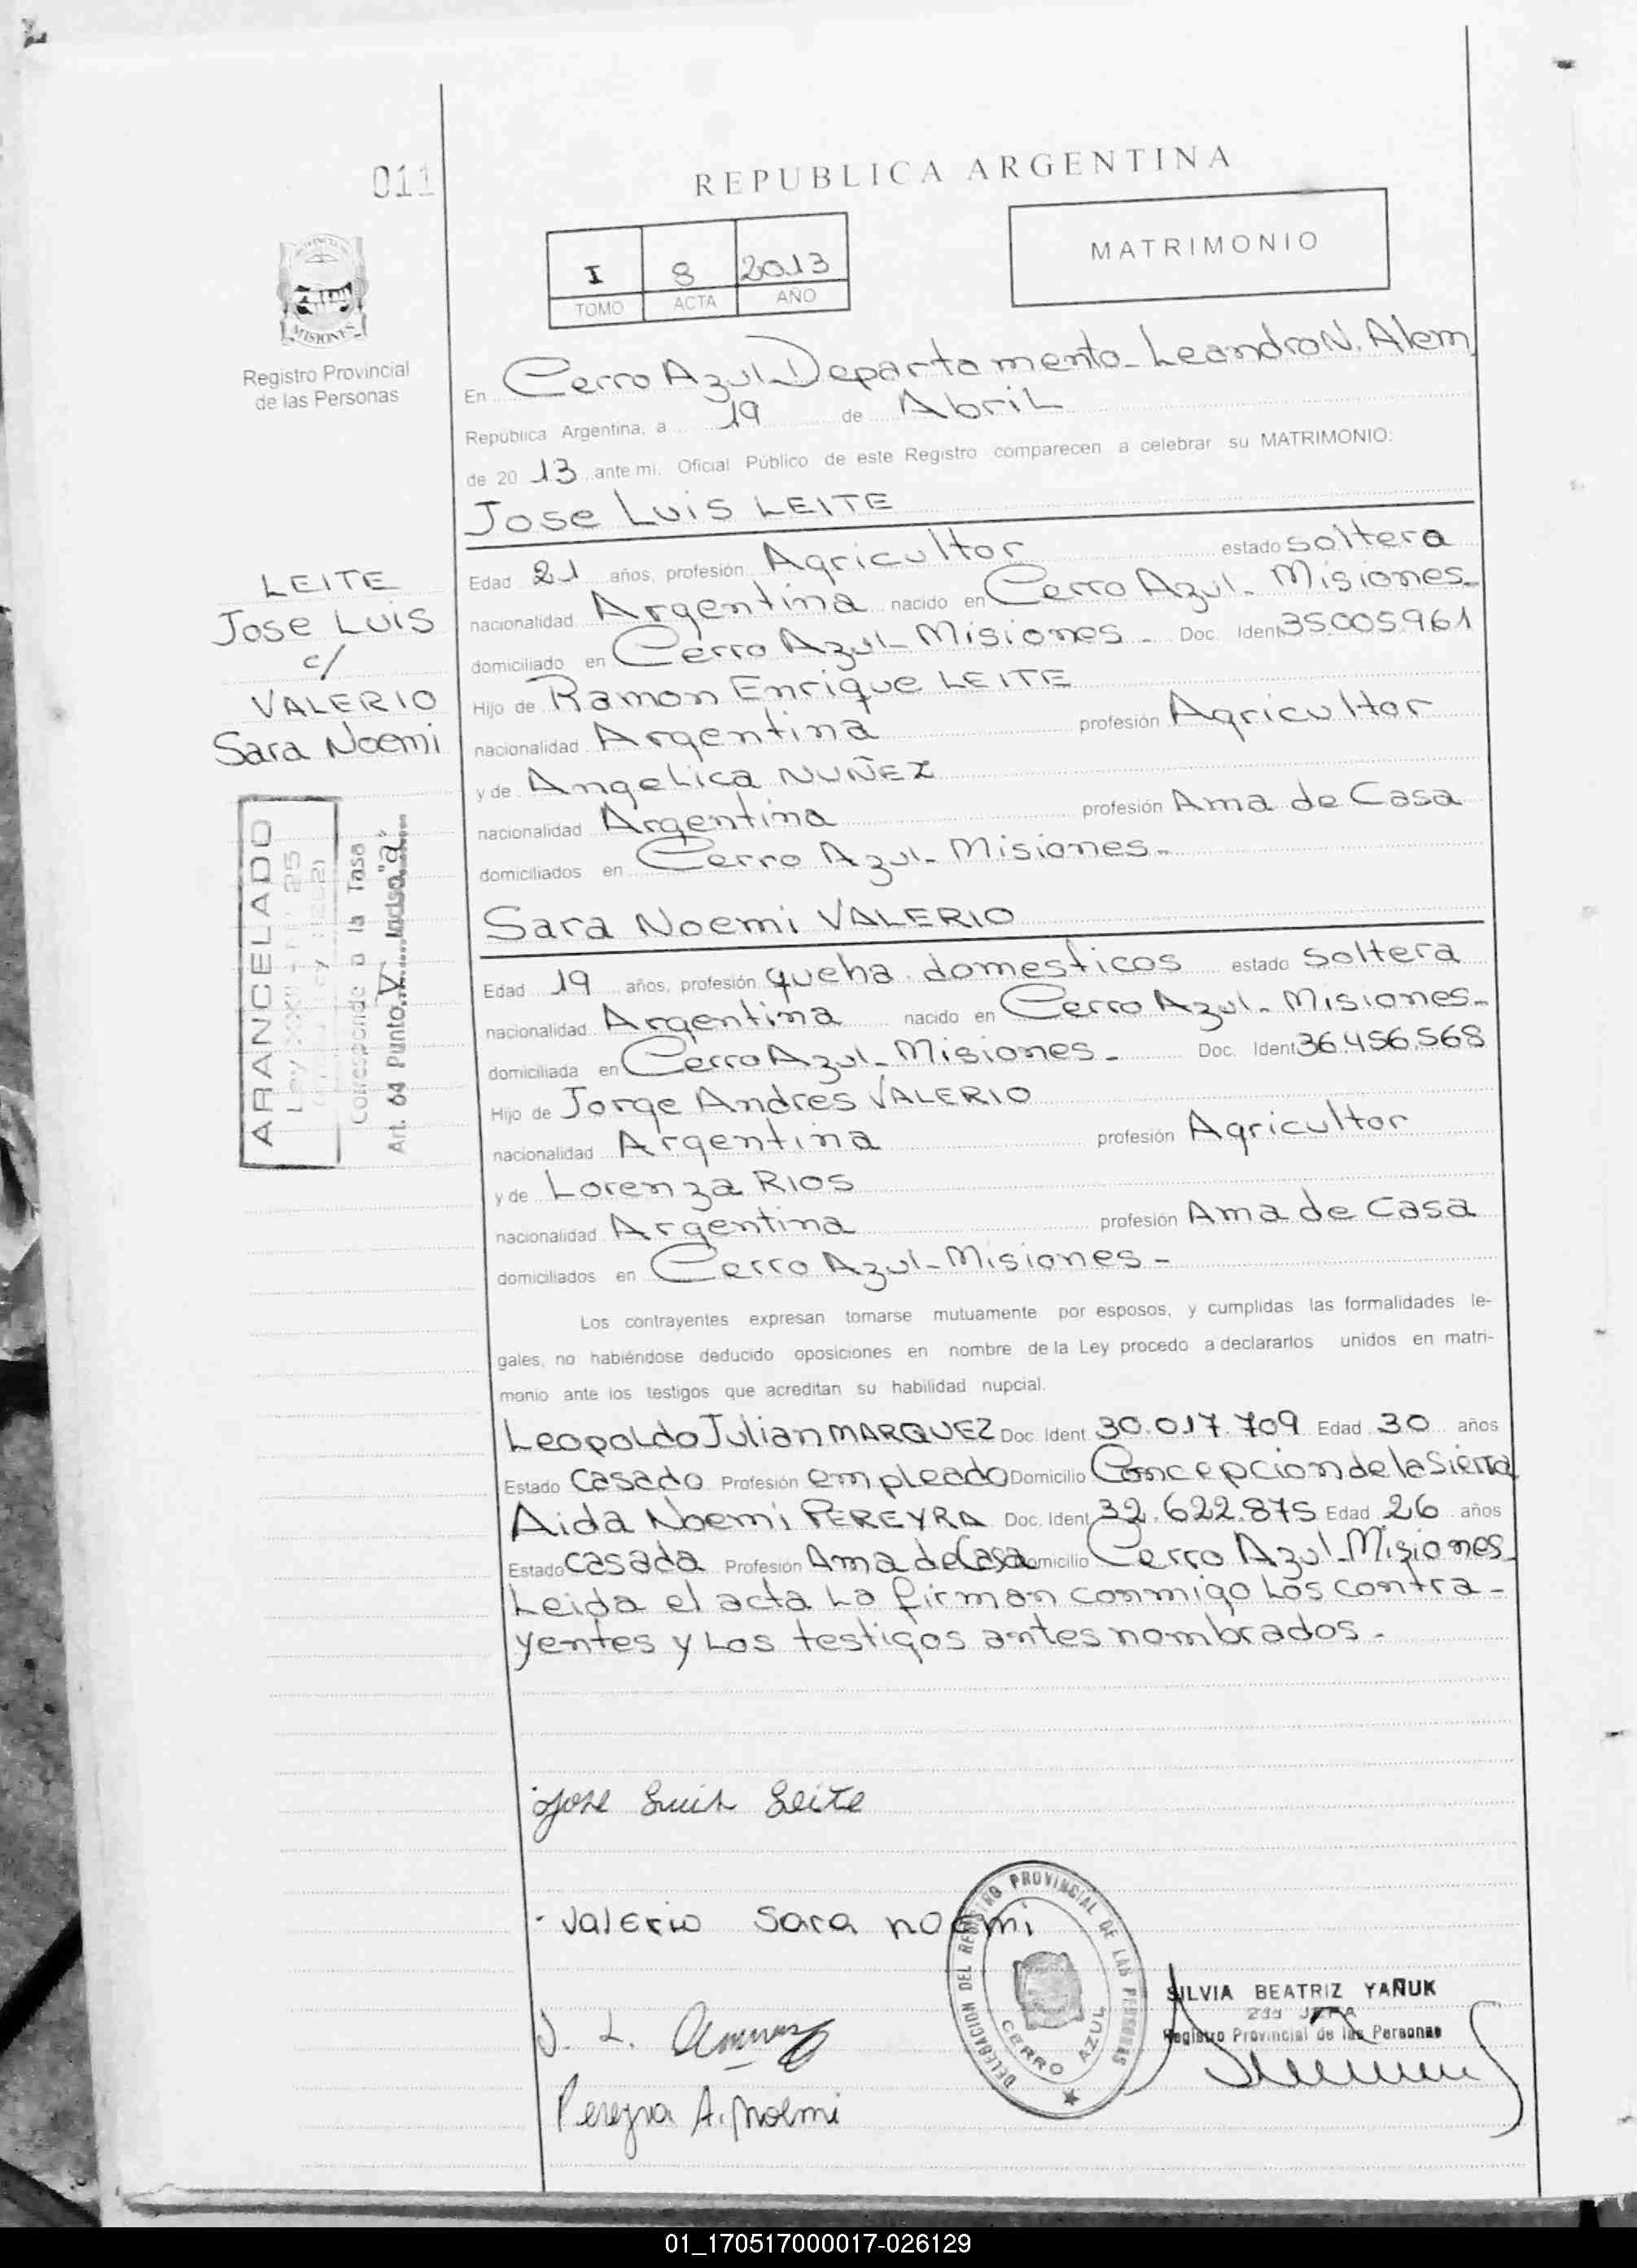 011
REPUBLICA ARGENTINA
I 8 2013
TOMO ACTA AÑO
MATRIMONIO
MISIONES
Registro Provincial
de las Personas
En Cerro Azul Departamento Leandro N. Alem
República Argentina, a 19 de Abril
de 20 13 ante mi. Oficial Público de este Registro comparecen a celebrar su MATRIMONIO:
Jose Luis LEITE
LEITE
Jose Luis
c/
VALERIO
Sara Noemi
Edad 21 años, profesión Agricultor estado soltera
nacionalidad Argentina nacido en Cerro Azul - Misiones -
domiciliado en Cerro Azul - Misiones - Doc. Ident 35.005.961
Hijo de Ramon Enrique LEITE
nacionalidad Argentina profesión Agricultor
y de Angelica NUÑEZ
nacionalidad Argentina profesión Ama de Casa
domiciliados en Cerro Azul - Misiones -
ARANCELADO
Corresponde a la Tasa
Art. 64 Punto V Inciso "a"
Sara Noemi VALERIO
Edad 19 años, profesión queha. domesticos estado soltera
nacionalidad Argentina nacido en Cerro Azul - Misiones -
domiciliada en Cerro Azul - Misiones - Doc. Ident 36.456.568
Hijo de Jorge Andres VALERIO
nacionalidad Argentina profesión Agricultor
y de Lorenza RIOS
nacionalidad Argentina profesión Ama de Casa
domiciliados en Cerro Azul - Misiones -
Los contrayentes expresan tomarse mutuamente por esposos, y cumplidas las formalidades le-
gales, no habiéndose deducido oposiciones en nombre de la Ley procedo a declararlos unidos en matri-
monio ante los testigos que acreditan su habilidad nupcial.
Leopoldo Julian MARQUEZ Doc. Ident 30.017.709 Edad 30 años
Estado Casado Profesión empleado Domicilio Concepcion de la Sierra
Aida Noemi PEREYRA Doc. Ident 32.622.875 Edad 26 años
Estado casada Profesión Ama de Casa Domicilio Cerro Azul - Misiones
Leida el acta La firman conmigo Los contra-
yentes y Los testigos antes nombrados -
Jose Luis Leite
Valerio Sara noemi
Pereyra A. Noemi
DELEGACION DEL REGISTRO PROVINCIAL DE LAS PERSONAS
CERRO AZUL
SILVIA BEATRIZ YAÑUK
2da JEFA
Registro Provincial de las Personas
01_170517000017-026129